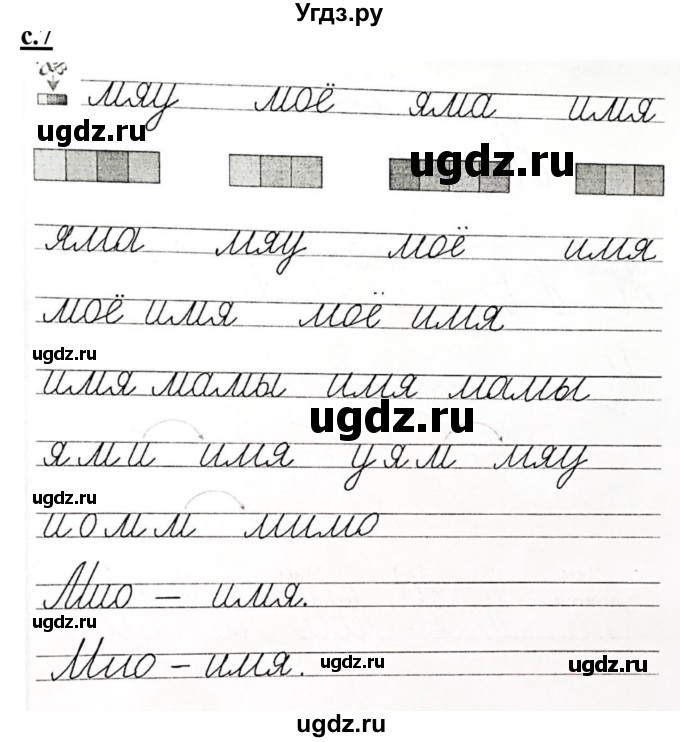 Угдз.ру
с.7
мяу моё яма имя
ugdz.ru
ugdz.ru
яма мяу моё имя
моё имя моё имя
ugdz.ru
имя мамы имя мамы
ugdz.ru
ями имя уям мяу
ugdz.ru
иомм мимо
Мио – имя.
ugdz.ru
Мио – имя.
ugdz.ru
ugdz.ru
ugdz.ru